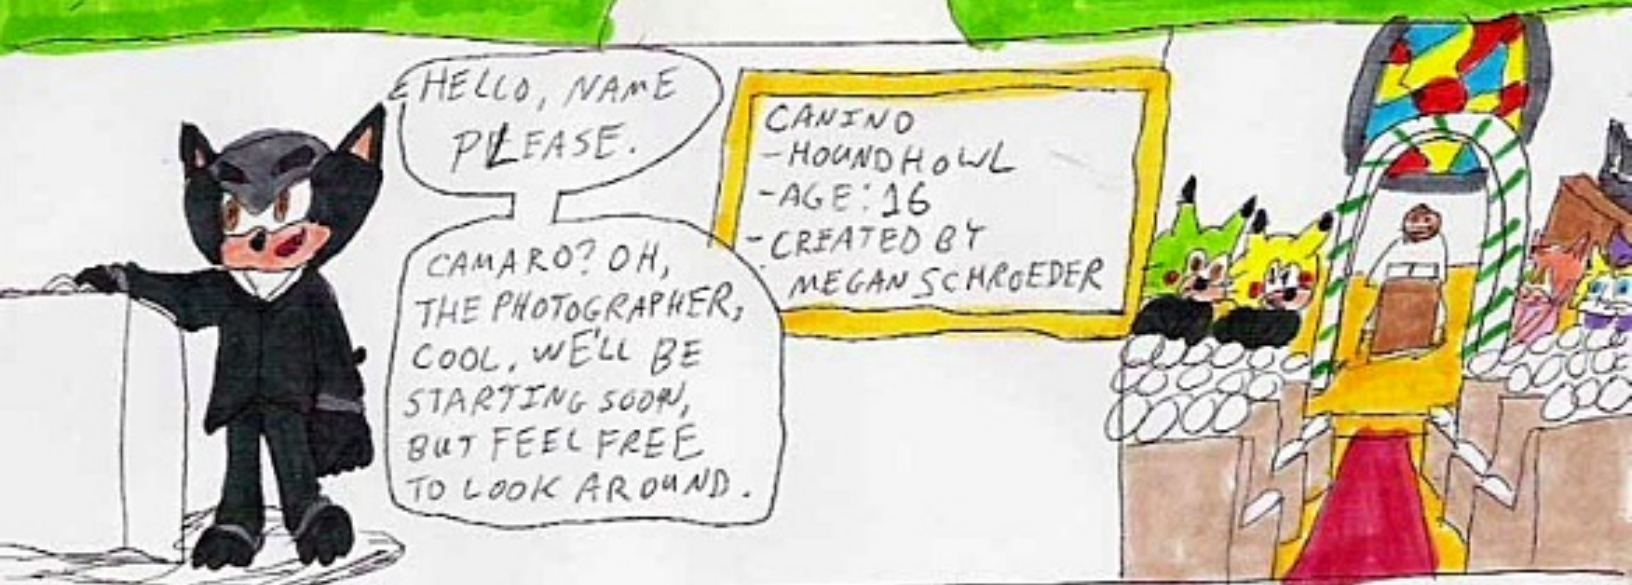 HELLO, NAME
PLEASE.
CAMARO? OH,
THE PHOTOGRAPHER,
COOL. WE'LL BE
STARTING SOON,
BUT FEEL FREE
TO LOOK AROUND.
CANINO
-HOUNDHOWL
-AGE: 16
-CREATED BY
MEGAN SCHROEDER